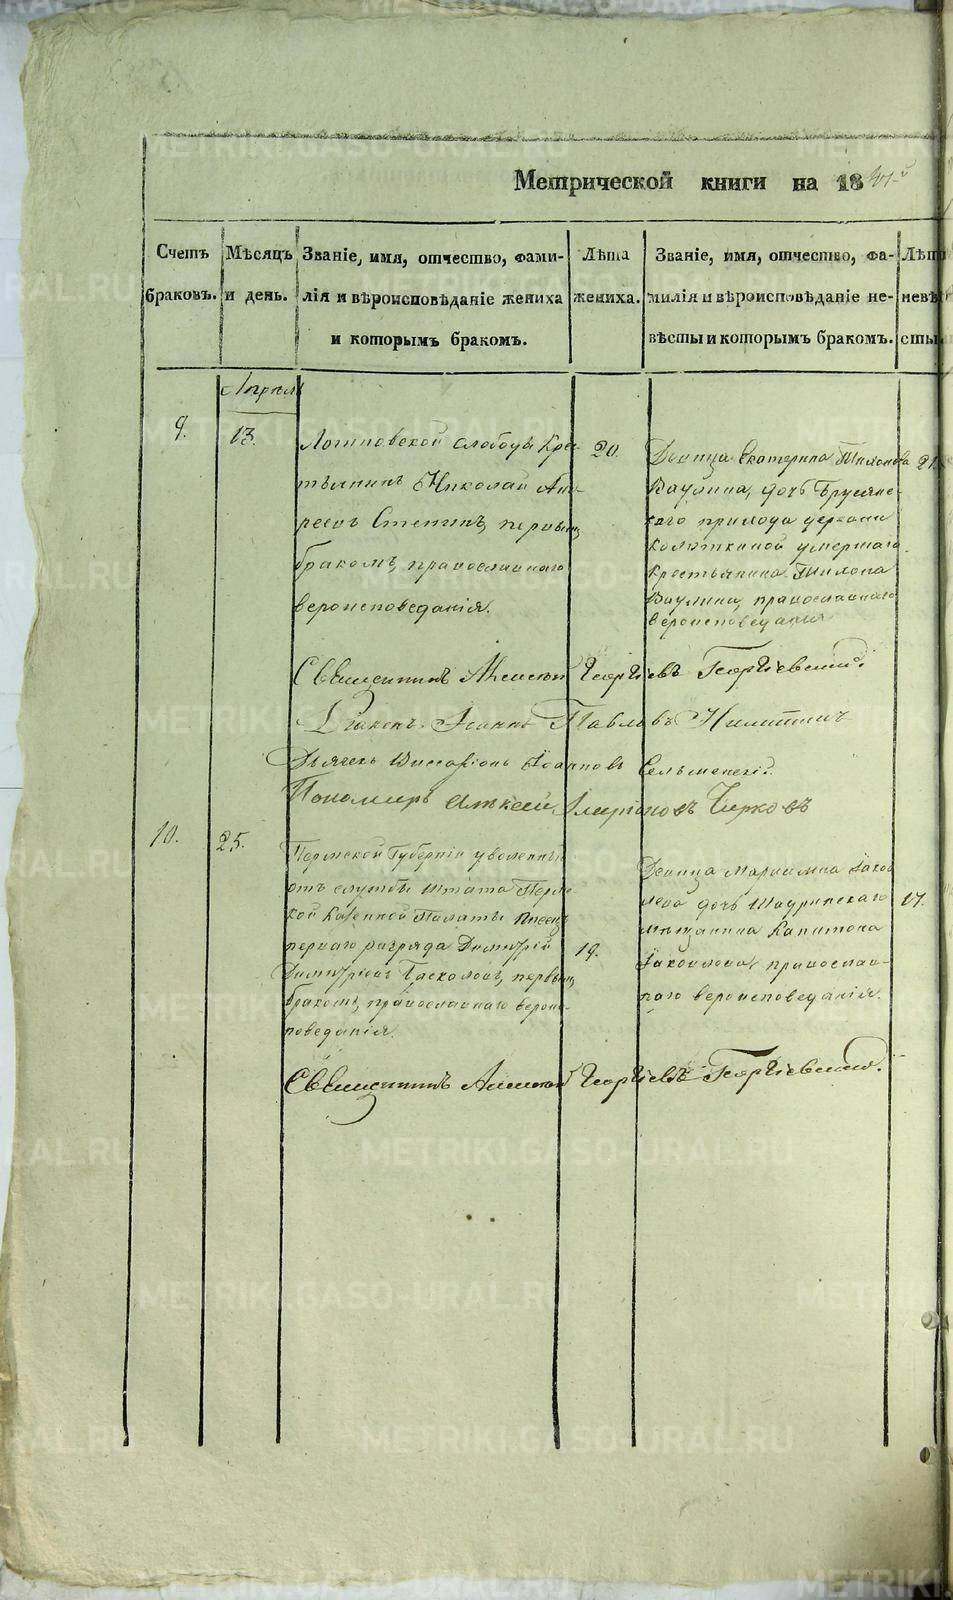 Метрической книги на 1841-й
Счетъ браковъ.
Мѣсяцъ и день.
Званіе, имя, отчество, фами-
лія и вѣроисповѣданіе жениха
и которымъ бракомъ.
Лѣта
жениха.
Званіе, имя, отчество, фа-
милія и вѣроисповѣданіе не-
вѣсты и которымъ бракомъ.
Лѣт
невѣ
сты
Апрѣль
9.
13.
Логиновской слободы Кре-
тьянинъ Николай
Степинъ, первымъ
бракомъ, православнаго
вероисповеданія.
20.
Девица Екатерина Тихонова
Ваулина, дочь Брусян-
скаго прихода деревни
Колюткиной умершаго
Крестьянина Тихона
Ваулина, православнаго
вероисповеданія
21.
Священникъ Алексей Георгіевъ Георгіевскій.
Діаконъ Іоаннъ Павловъ
Дьячекъ Виссаріонъ Іоанновъ Сельменскій.
Пономарь Алексей Мироновъ Чирковъ
10.
25.
Пермской Губерніи уволенный
отъ службы штата Перм-
кой Казенной Палаты Писецъ
перваго разряда Димитрій
Димитріевъ первымъ
бракомъ, православнаго вероис-
поведанія.
19.
Девица Маріамна Яков
лева дочь Шадринскаго
мѣщанина Капитона
Яковлева, православ-
наго вероисповеданія.
17.
Священникъ Алексей Георгіевъ Георгіевскій.
METRIKI.GASO-URAL.RU